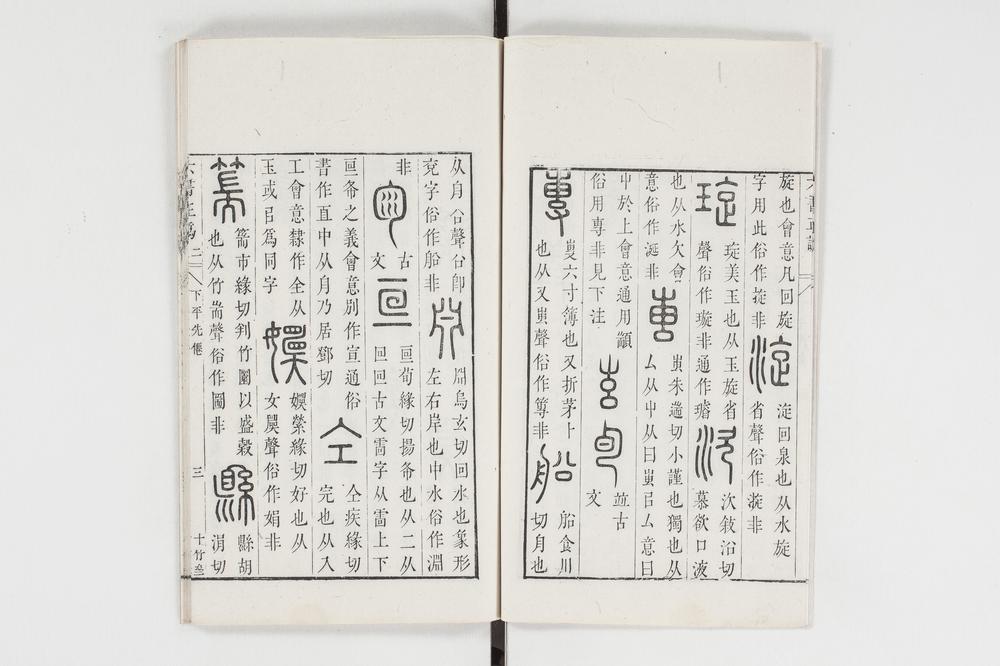 六書正譌
旋也會意凡回旋
字用此俗作㨔非
淀
淀回泉也从水旋
省聲俗作漩非
琁
琁美玉也从玉旋省
聲俗作璇非通作璿
㳄
㳄敍浴切
慕欲口液
也从水欠會
意俗作涎非
叀
叀朱遄切小謹也獨也从
厶从屮从曰叀㠯厶意曰
屮於上會意通用顓
俗用專非見下注
𠀤古
文
專
專六寸簿也又折茅卜
也从又叀聲俗作篿非
船
船食川
切舟也
从舟㕣聲㕣卽
兗字俗作船非
𣶒
𣶒烏玄切回水也象形
左右岸也中水俗作淵
非
古
文
亘
亘荀緣切揚布也从二从
囘囘古文雷字从雷上下
亘布之義會意別作宣通俗
書作亙中从月乃居鄧切
仝
仝疾緣切
完也从入
工會意隸作全从
玉或㠯爲同字
嬽
嬽縈緣切好也从
女䁢聲俗作娟非
篅
篅市緣切判竹圜以盛穀
也从竹耑聲俗作圌非
縣
縣胡
涓切
六書正譌 二 下平先僊 三 十竹齋